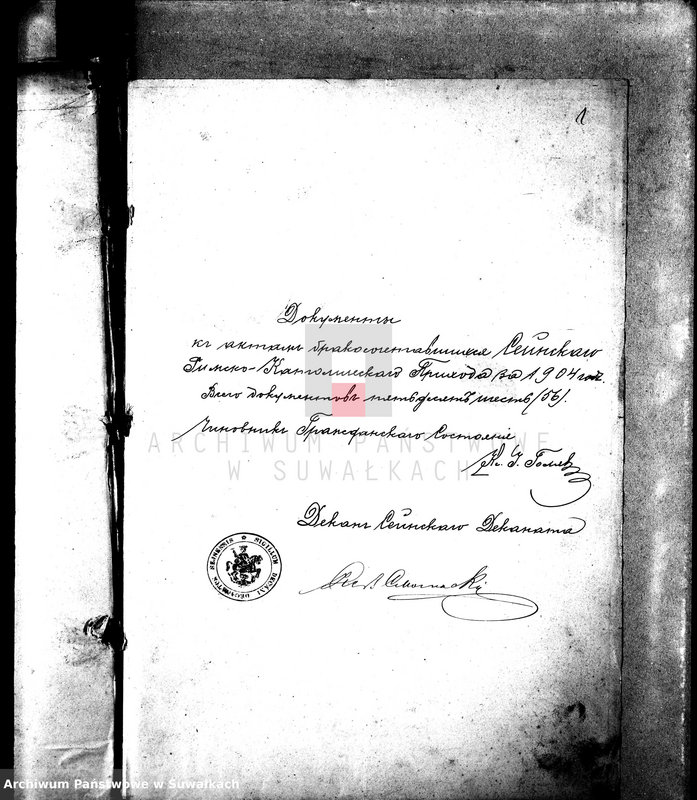 1
Документы
къ актамъ бракосочетавшихся Сейнскаго
Римско-Католическаго Прихода за 1904 годъ.
Всего документовъ пятьдесятъ шесть (56).
Чиновникъ Гражданскаго Состоянія
ARCHIWUM PAŃSTWOWE
W SUWAŁKACH
Деканъ Сейнскаго Деканата
SIGILLUM DECANI DECANATUS SEJNENSIS
Archiwum Państwowe w Suwałkach